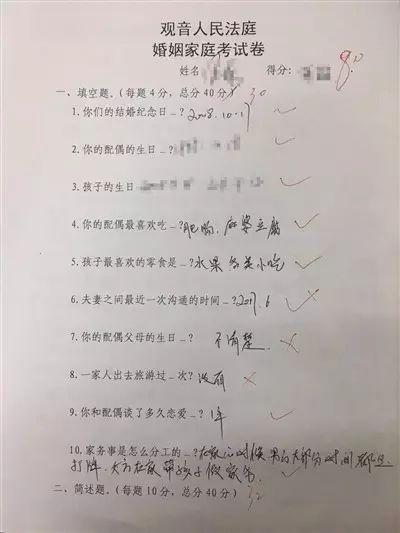 观音人民法庭
婚姻家庭考试卷
姓名 得分: 80
一、填空题。(每题4分,总分40分) 30
1.你们的结婚纪念日_?2008.10.17
2.你的配偶的生日_?
3.孩子的生日
4.你的配偶最喜欢吃_?肥肠、麻婆豆腐
5.孩子最喜欢的零食是_?水果 各类小吃
6.夫妻之间最近一次沟通的时间_?2017.6
7.你的配偶父母的生日_? 不清楚.
8.一家人出去旅游过_次? 没有
9.你和配偶谈了多久恋爱_? 1年
10.家务事是怎么分工的_?在家的时候 男的大部分时间都是
打牌、女方在家带孩子做家务
二、简述题。(每题10分,总分40分)